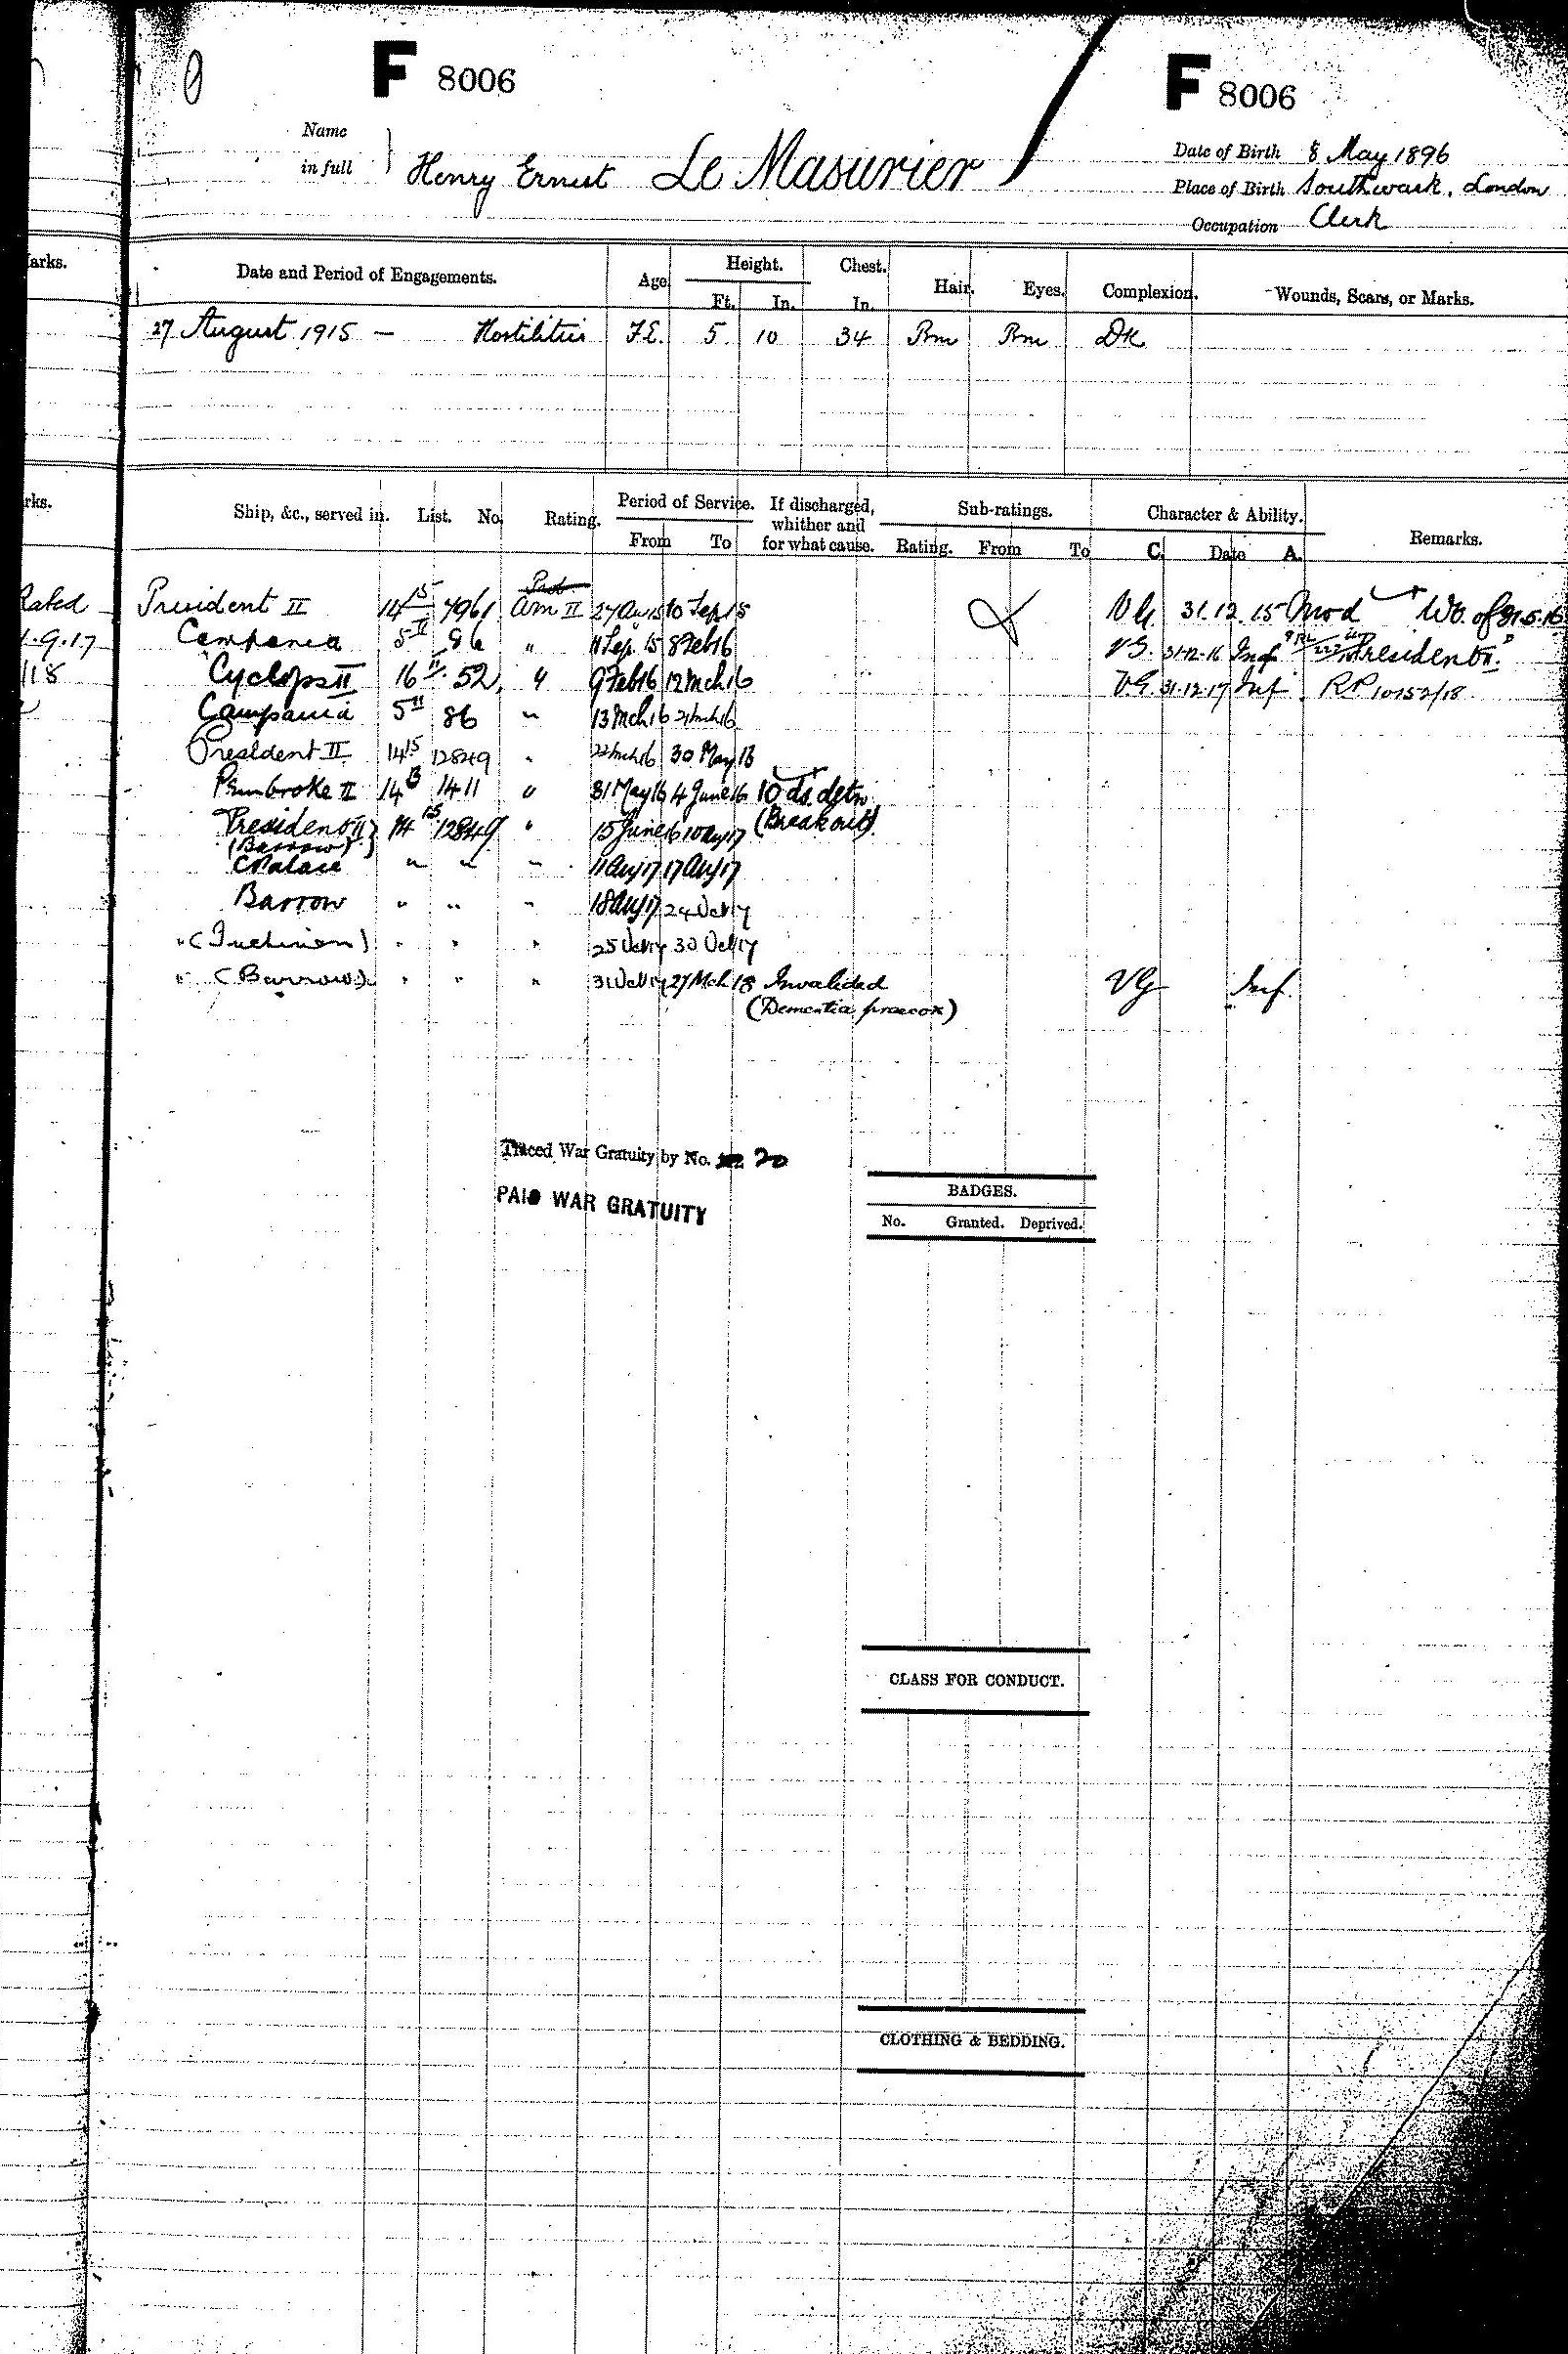 F 8006
F 8006
Name in full Henry Ernest Le Masurier
Date of Birth 8 May 1896
Place of Birth Southwark, London
Occupation Clerk
arks.
Date and Period of Engagements. Age Height. Ft. In. Chest. In. Hair. Eyes. Complexion. Wounds, Scars, or Marks.
27 August 1915 — Hostilities F.E. 5 10 34 Brn Brn Dk
rks.
Ship, &c., served in. List. No. Rating. Period of Service. From To If discharged, whither and for what cause. Sub-ratings. Rating. From To Character & Ability. C. Date A. Remarks.
Rated
.9.17
18
President II 14 15 7961 Prob AM II 27 Au 15 10 Sep 15 VG 31.12.15 Mod WO. of 31.5.16
Campania 5 II 86 " 11 Sep 15 8 Feb 16 VG 31.12.16 Inf President II.
Cyclops II 16 II 52 " 9 Feb 16 12 Mch 16 VG 31.12.17 Inf RP 10152/18
Campania 5 II 86 " 13 Mch 16 21 Mch 16
President II 14 15 12849 " 22 Mch 16 30 May 16
Pembroke II 14 B 1411 " 31 May 16 4 June 16 10 ds detn
President II 14 15 12849 " 15 June 16 10 Au 17 (Break out)
(Barrow)
C Palace " " " 11 Au 17 17 Au 17
Barrow " " " 18 Au 17 24 Oct 17
" (Inchinnan) " " " 25 Oct 17 30 Oct 17
" (Barrow) " " " 31 Oct 17 27 Mch 18 Invalided VG Inf.
(Dementia praecox)
Traced War Gratuity by No. 20
PAID WAR GRATUITY
BADGES.
No. Granted. Deprived.
CLASS FOR CONDUCT.
CLOTHING & BEDDING.